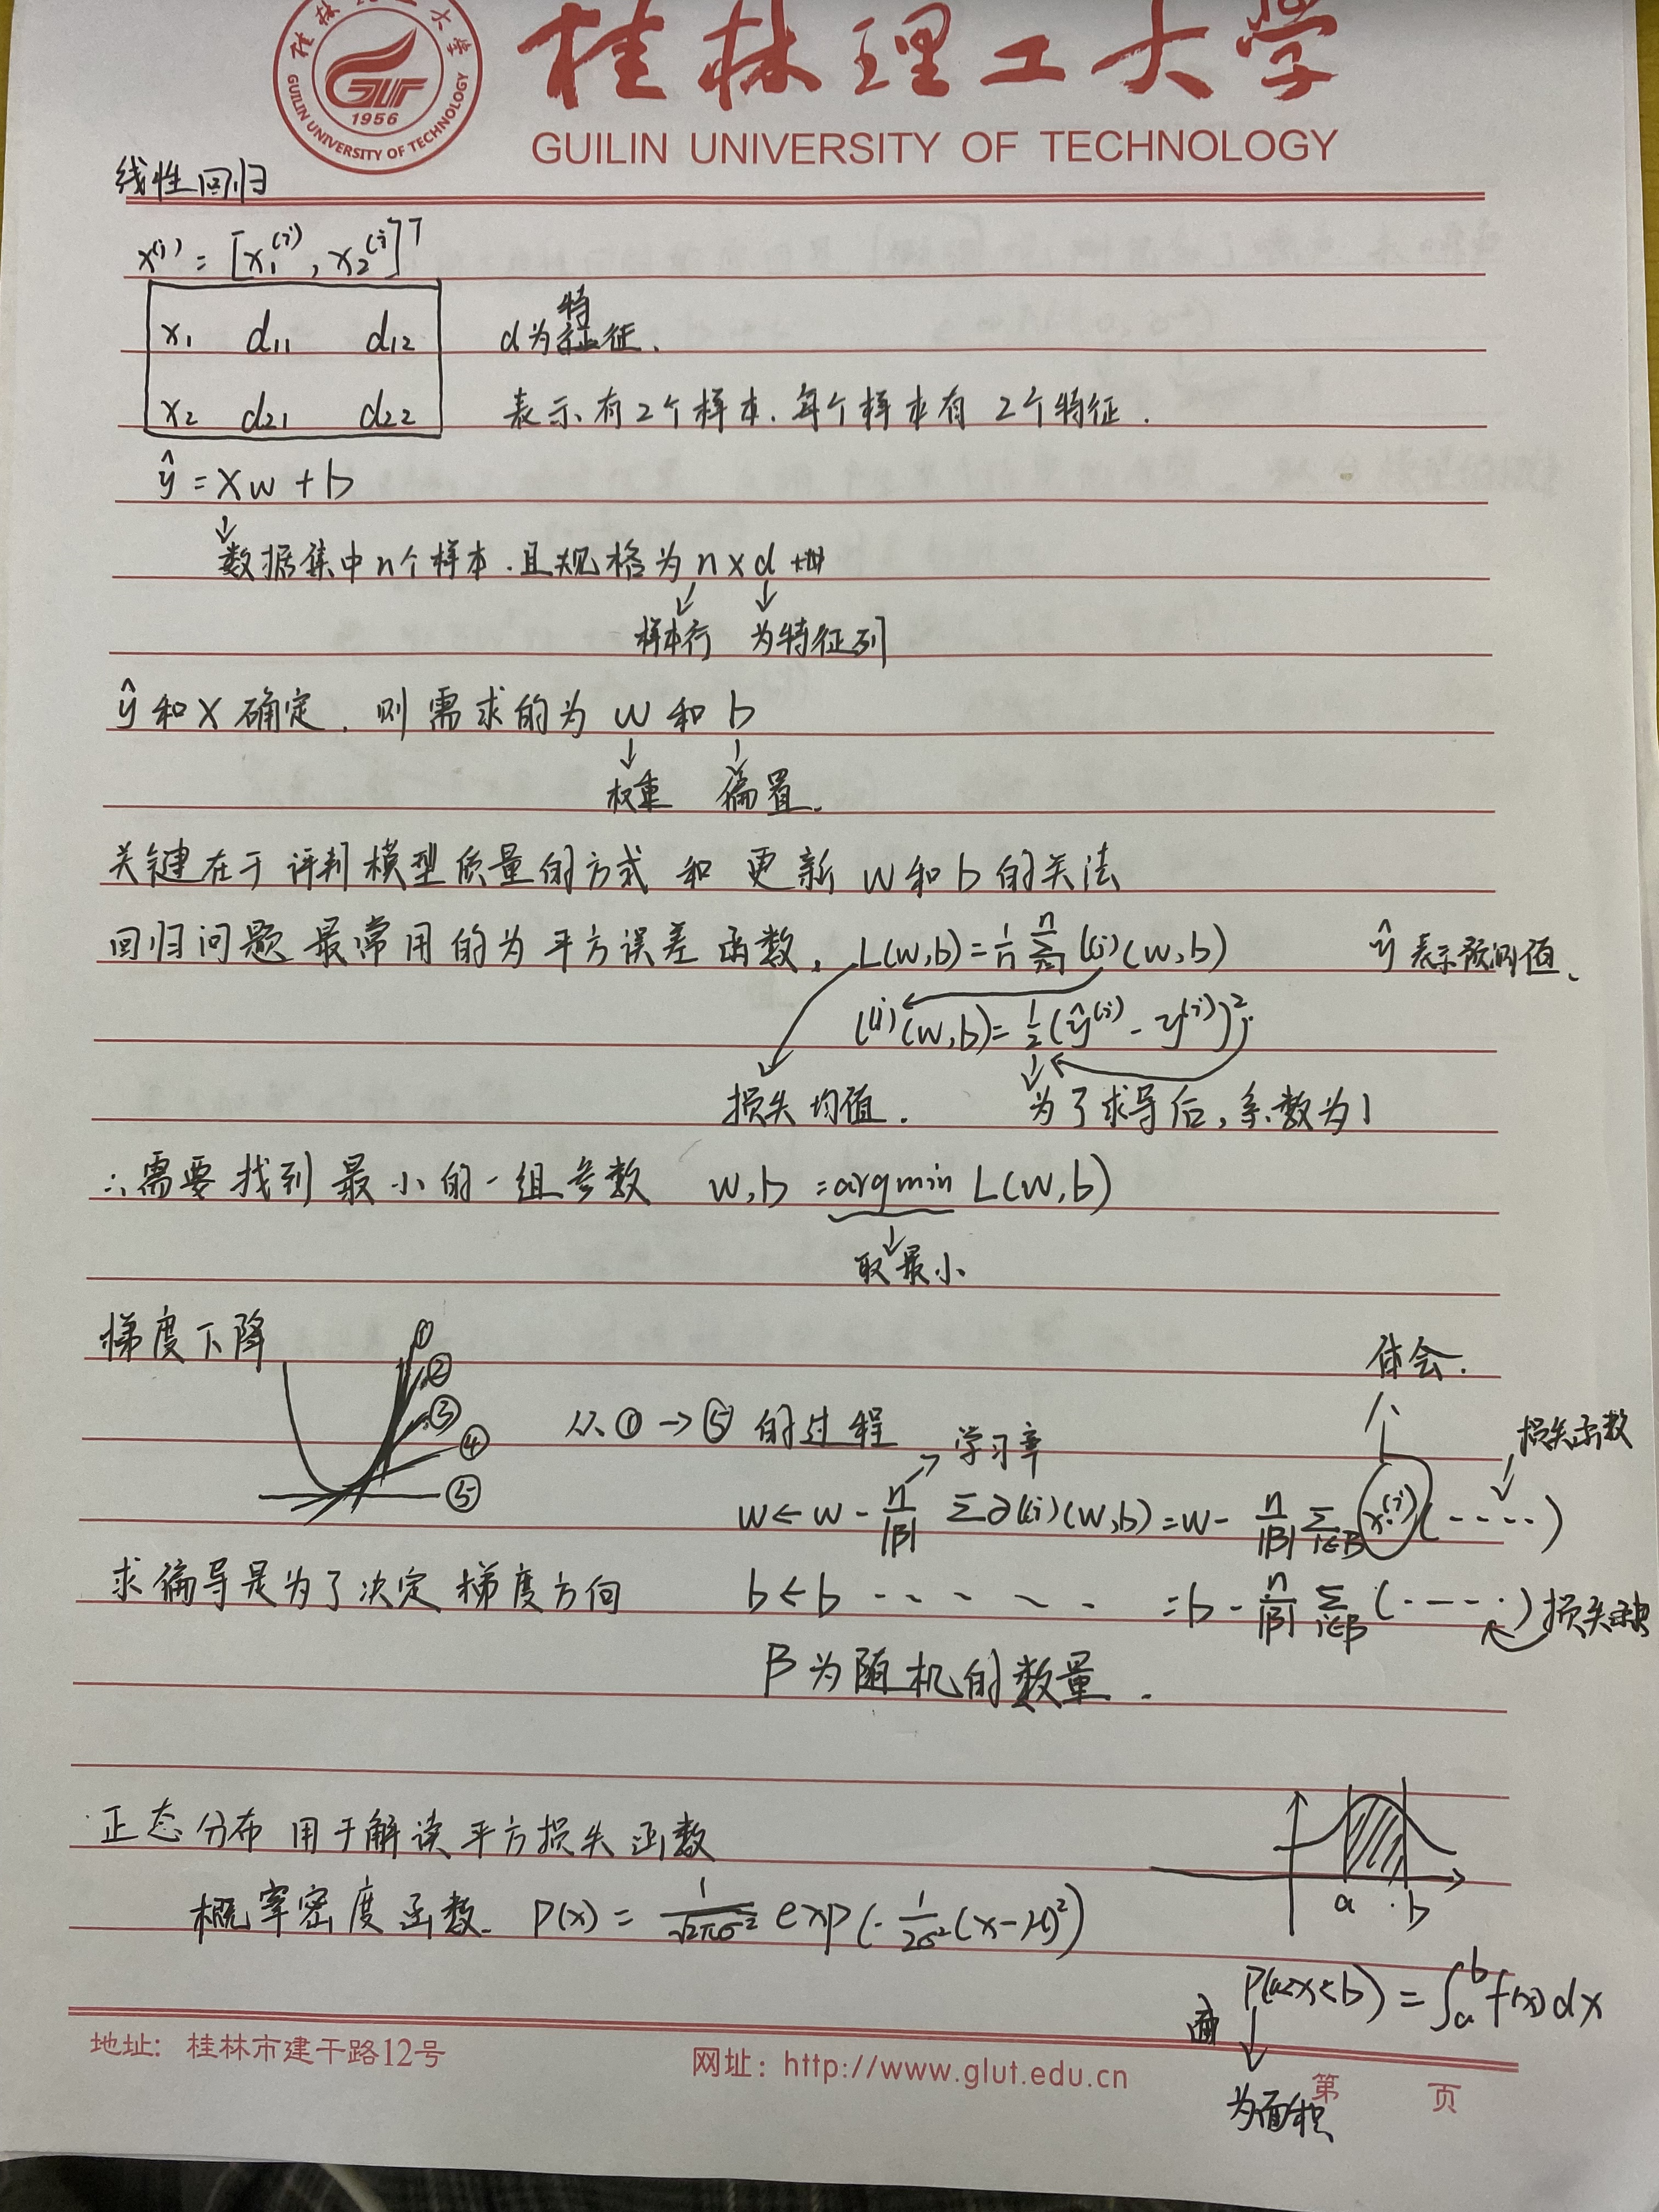 桂林理工大学
GUILIN UNIVERSITY OF TECHNOLOGY
1956
GUILIN UNIVERSITY OF TECHNOLOGY
线性回归
x⁽ⁱ⁾ = [x₁⁽ⁱ⁾, x₂⁽ⁱ⁾]ᵀ
x₁ d₁₁ d₁₂
d为特征.
x₂ d₂₁ d₂₂
表示有2个样本.每个样本有2个特征.
ŷ = Xw + b
↓
数据集中n个样本.且规格为n×d
↓ ↓
样本行 为特征列
ŷ和X确定.则需求的为w和b
↓ ↓
权重 偏置.
关键在于评判模型质量的方式和更新w和b的方法
回归问题最常用的为平方误差函数. L(w,b)=1/n Σ l⁽ⁱ⁾(w,b) ŷ表示预测值.
l⁽ⁱ⁾(w,b)=1/2(ŷ⁽ⁱ⁾-y⁽ⁱ⁾)²
损失均值. 为了求导后,系数为1
∴需要找到最小的一组参数 w,b = argmin L(w,b)
↓
取最小
梯度下降
① ② ③ ④ ⑤
体会.
从①→⑤的过程
学习率
损失函数
w←w - n/|β| Σ∂l⁽ⁱ⁾(w,b)=w - n/|β| Σi∈β x⁽ⁱ⁾(····)
求偏导是为了决定梯度方向
b←b - - - - - =b - n/|β| Σi∈β (·—··)损失函数
β为随机的数量.
正态分布用于解读平方损失函数
概率密度函数. P(x) = 1/√2πσ² exp(-1/2σ²(x-μ)²)
a b
P(a<x<b) = ∫ₐᵇ f(x)dx
↓
为面积
地址：桂林市建干路12号
网址：http://www.glut.edu.cn
第 页